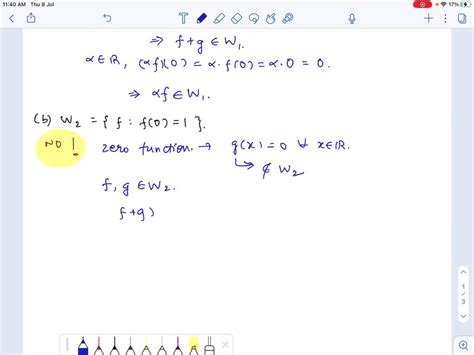 11:40 AM Thu 8 Jul
17%
⇒ f+g ∈ W₁.
α∈ℝ, (αf)(0) = α·f(0) = α·0 = 0.
⇒ αf ∈ W₁.
(b) W₂ = { f : f(0) = 1 }.
NO! zero function → g(x) = 0 ∀ x∈ℝ.
↳ ∉ W₂
f, g ∈ W₂.
f+g)
1
3